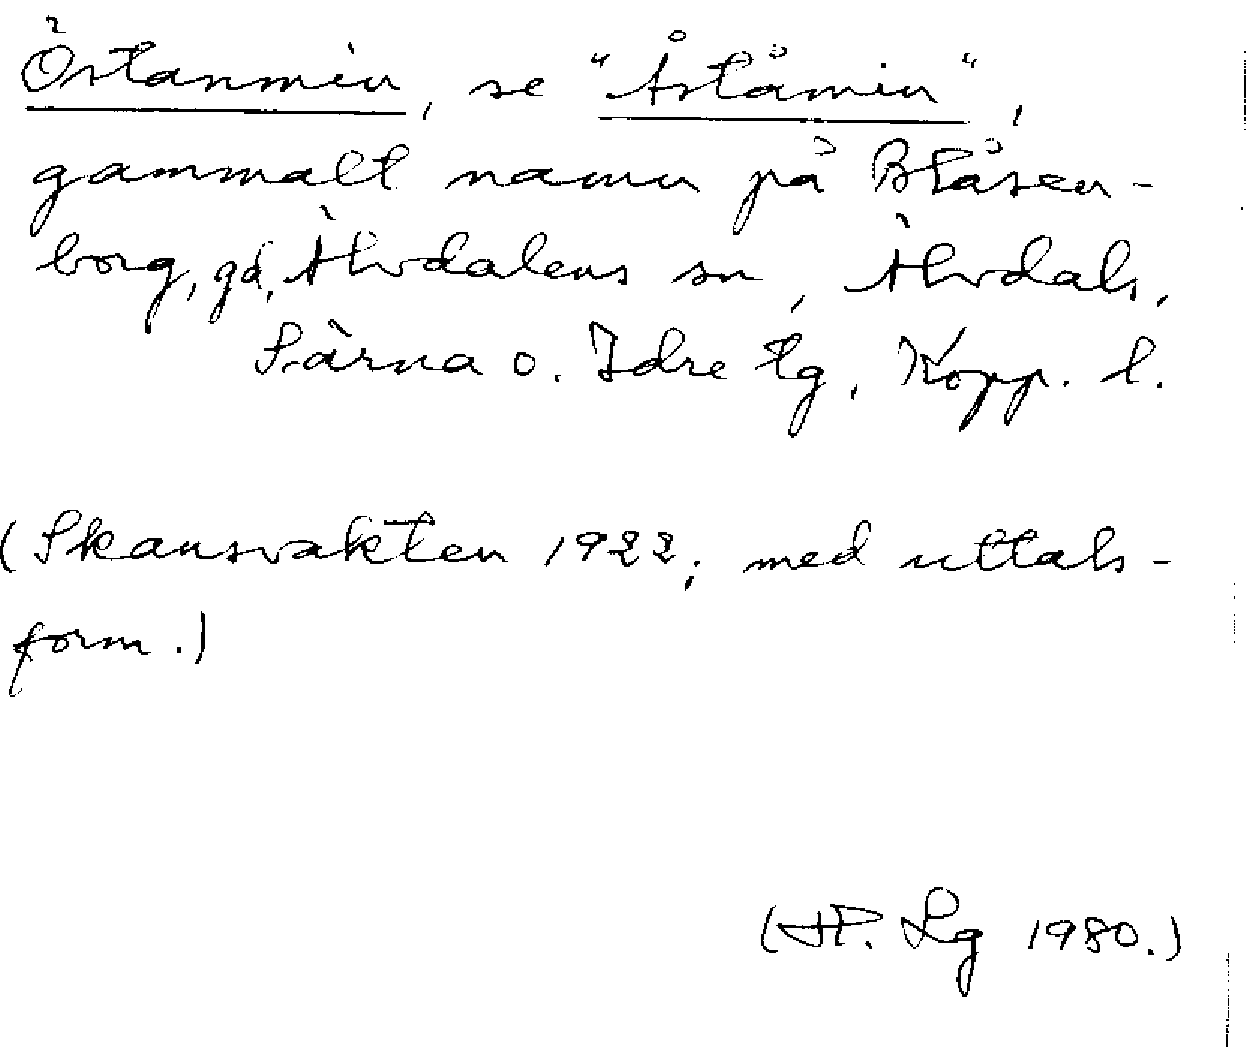 Östanmien, se "Åståmin",
gammalt namn på Blåsen-
borg, gd, Älvdalens sn, Älvdals,
Särna o. Idre tg, Kopp. l.
(Skansvakten 1922; med uttals-
form.)
(HP. Lg 1980.)